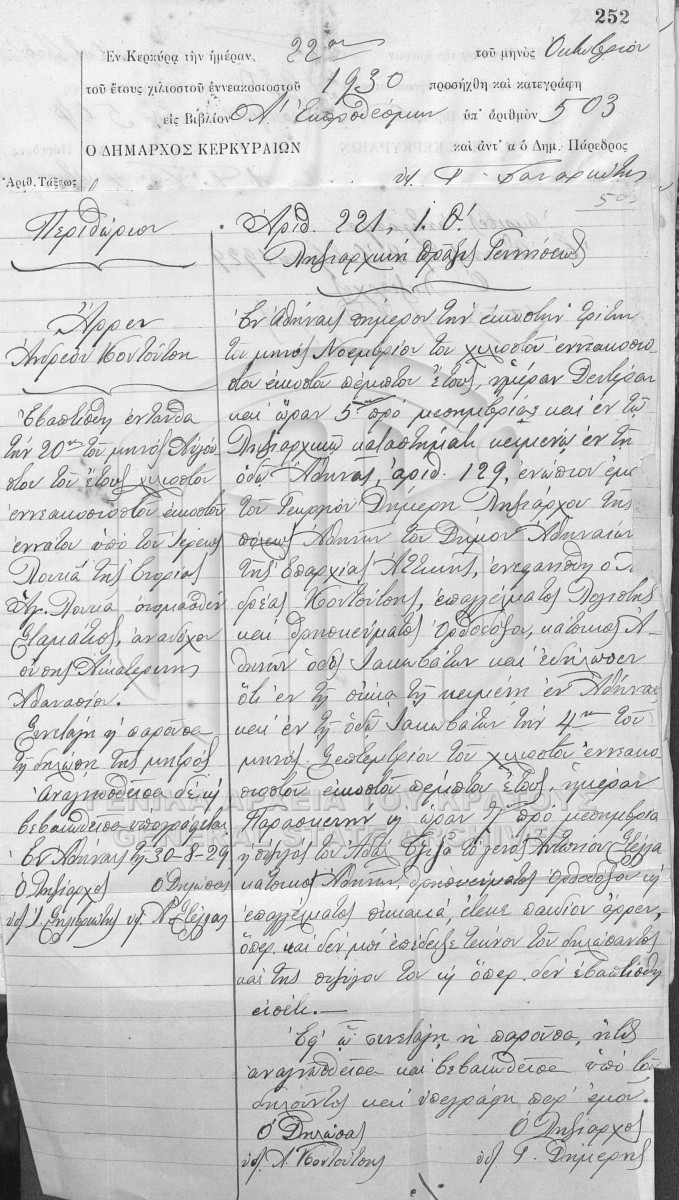 252
Ἐν Κερκύρᾳ τὴν ἡμέραν 22αν τοῦ μηνὸς Ὀκτωβρίου
τοῦ ἔτους χιλιοστοῦ ἐννεακοσιοστοῦ 1930 προσήχθη καὶ κατεγράφη
εἰς Βιβλίον Α' Ἐκπροθέσμων ὑπ' ἀριθμὸν 503
Ο ΔΗΜΑΡΧΟΣ ΚΕΡΚΥΡΑΙΩΝ καὶ ἀντ' α ὁ Δημ. Πάρεδρος
Ἀριθ. Τάξεως
503
Περιθώριον
Ἄρρεν
Ἀνδρέου Κοντούτση
Ἐβαπτίσθη ἐνταῦθα
τὴν 20ην τοῦ μηνὸς Αὐγού-
στου τοῦ ἔτους χιλιοστοῦ
ἐννεακοσιοστοῦ εἰκοστοῦ
ἐννάτου ὑπὸ τοῦ Ἱερέως
Λουκᾶ τῆς ἐνορίας
Ἁγ. Λουκᾶ ὀνομασθὲν
Σταμάτιος, ἀναδόχου
οὔσης Αἰκατερίνης
Ἀθανασίου.
Συνετάγη ἡ παροῦσα
τῇ δηλώσει τῆς μητρός
Ἀναγνωσθεῖσα δὲ κ
βεβαιωθεῖσα ὑπογράφεται
Ἐν Ἀθήναις τῇ 30-8-29
Ὁ Ληξίαρχος Ὁ Δηλώσας
Ἀριθ. 221, 1. Θ'.
Ληξιαρχικὴ πρᾶξις Γεννήσεως
Ἐν Ἀθήναις σήμερον τὴν εἰκοστὴν τρίτην
τοῦ μηνὸς Νοεμβρίου τοῦ χιλιοστοῦ ἐννεακοσιο-
στοῦ εἰκοστοῦ πέμπτου ἔτους, ἡμέραν Δευτέραν
καὶ ὥραν 5ην πρὸ μεσημβρίας καὶ ἐν τῷ
Ληξιαρχικῷ καταστήματι κειμένῳ ἐν τῇ
ὁδῷ Ἀθηνᾶς, ἀριθ. 129, ἐνώπιον ἐμοῦ
τοῦ Γεωργίου Δημέρη Ληξιάρχου τῆς
πόλεως Ἀθηνῶν τοῦ Δήμου Ἀθηναίων
τῆς Ἐπαρχίας Ἀττικῆς, ἐνεφανίσθη ὁ Ἀν-
δρέας Κοντούτσης, ἐπαγγέλματος
καὶ θρησκεύματος ὀρθοδόξου, κάτοικος Ἀ-
θηνῶν ὁδὸς Ἰακωβάτων καὶ ἐδήλωσεν
ὅτι ἐν τῇ οἰκίᾳ τῇ κειμένῃ ἐν Ἀθήναις
καὶ ἐν τῇ ὁδῷ Ἰακωβάτων τὴν 4ην τοῦ
μηνὸς Σεπτεμβρίου τοῦ χιλιοστοῦ ἐννεακο-
σιοστοῦ εἰκοστοῦ πέμπτου ἔτους, ἡμέραν
Παρασκευὴν κ ὥραν πρὸ μεσημβρίας
ἡ σύζυγός του τὸ γένος Ἀντωνίου
κάτοικος Ἀθηνῶν, θρησκεύματος ὀρθοδόξου κ
ἐπαγγέλματος οἰκιακά, ἔτεκε παιδίον ἄρρεν,
ὅπερ καὶ δέν μοι ἐπέδειξε τέκνον τοῦ δηλώσαντος
καὶ τῆς συζύγου του κ ὅπερ δὲν ἐβαπτίσθη
εἰσέτι.—
Ἐφ' ᾧ συνετάγη ἡ παροῦσα, ἥτις
ἀναγνωσθεῖσα καὶ βεβαιωθεῖσα ὑπὸ τοῦ
δηλοῦντος καὶ ὑπεγράφη παρ' ἐμοῦ.
Ὁ Δηλώσας Ὁ Ληξίαρχος
υπ. Α. Κοντούτσης υπ. Γ. Δημέρης
ΓΕΝΙΚΑ ΑΡΧΕΙΑ ΤΟΥ ΚΡΑΤΟΥΣ
GENERAL STATE ARCHIVES